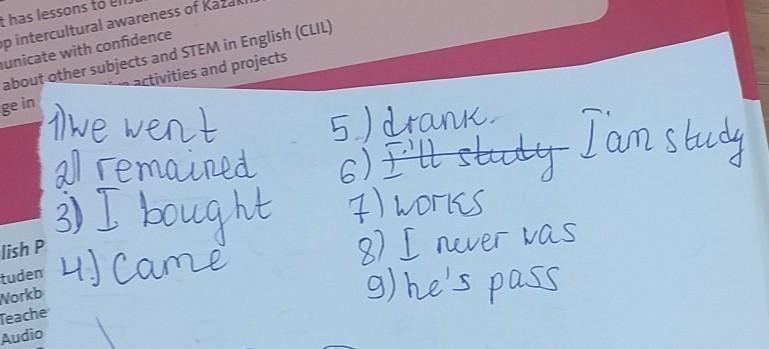 t has lessons to
p intercultural awareness of
unicate with confidence
about other subjects and STEM in English (CLIL)
ge in activities and projects
1) we went
2) remained
3) I bought
4.) came
5.) drank.
6) I'll study I'am study
7) works
8) I never was
9) he's pass
lish P
tuden
Workb
Teache
Audio